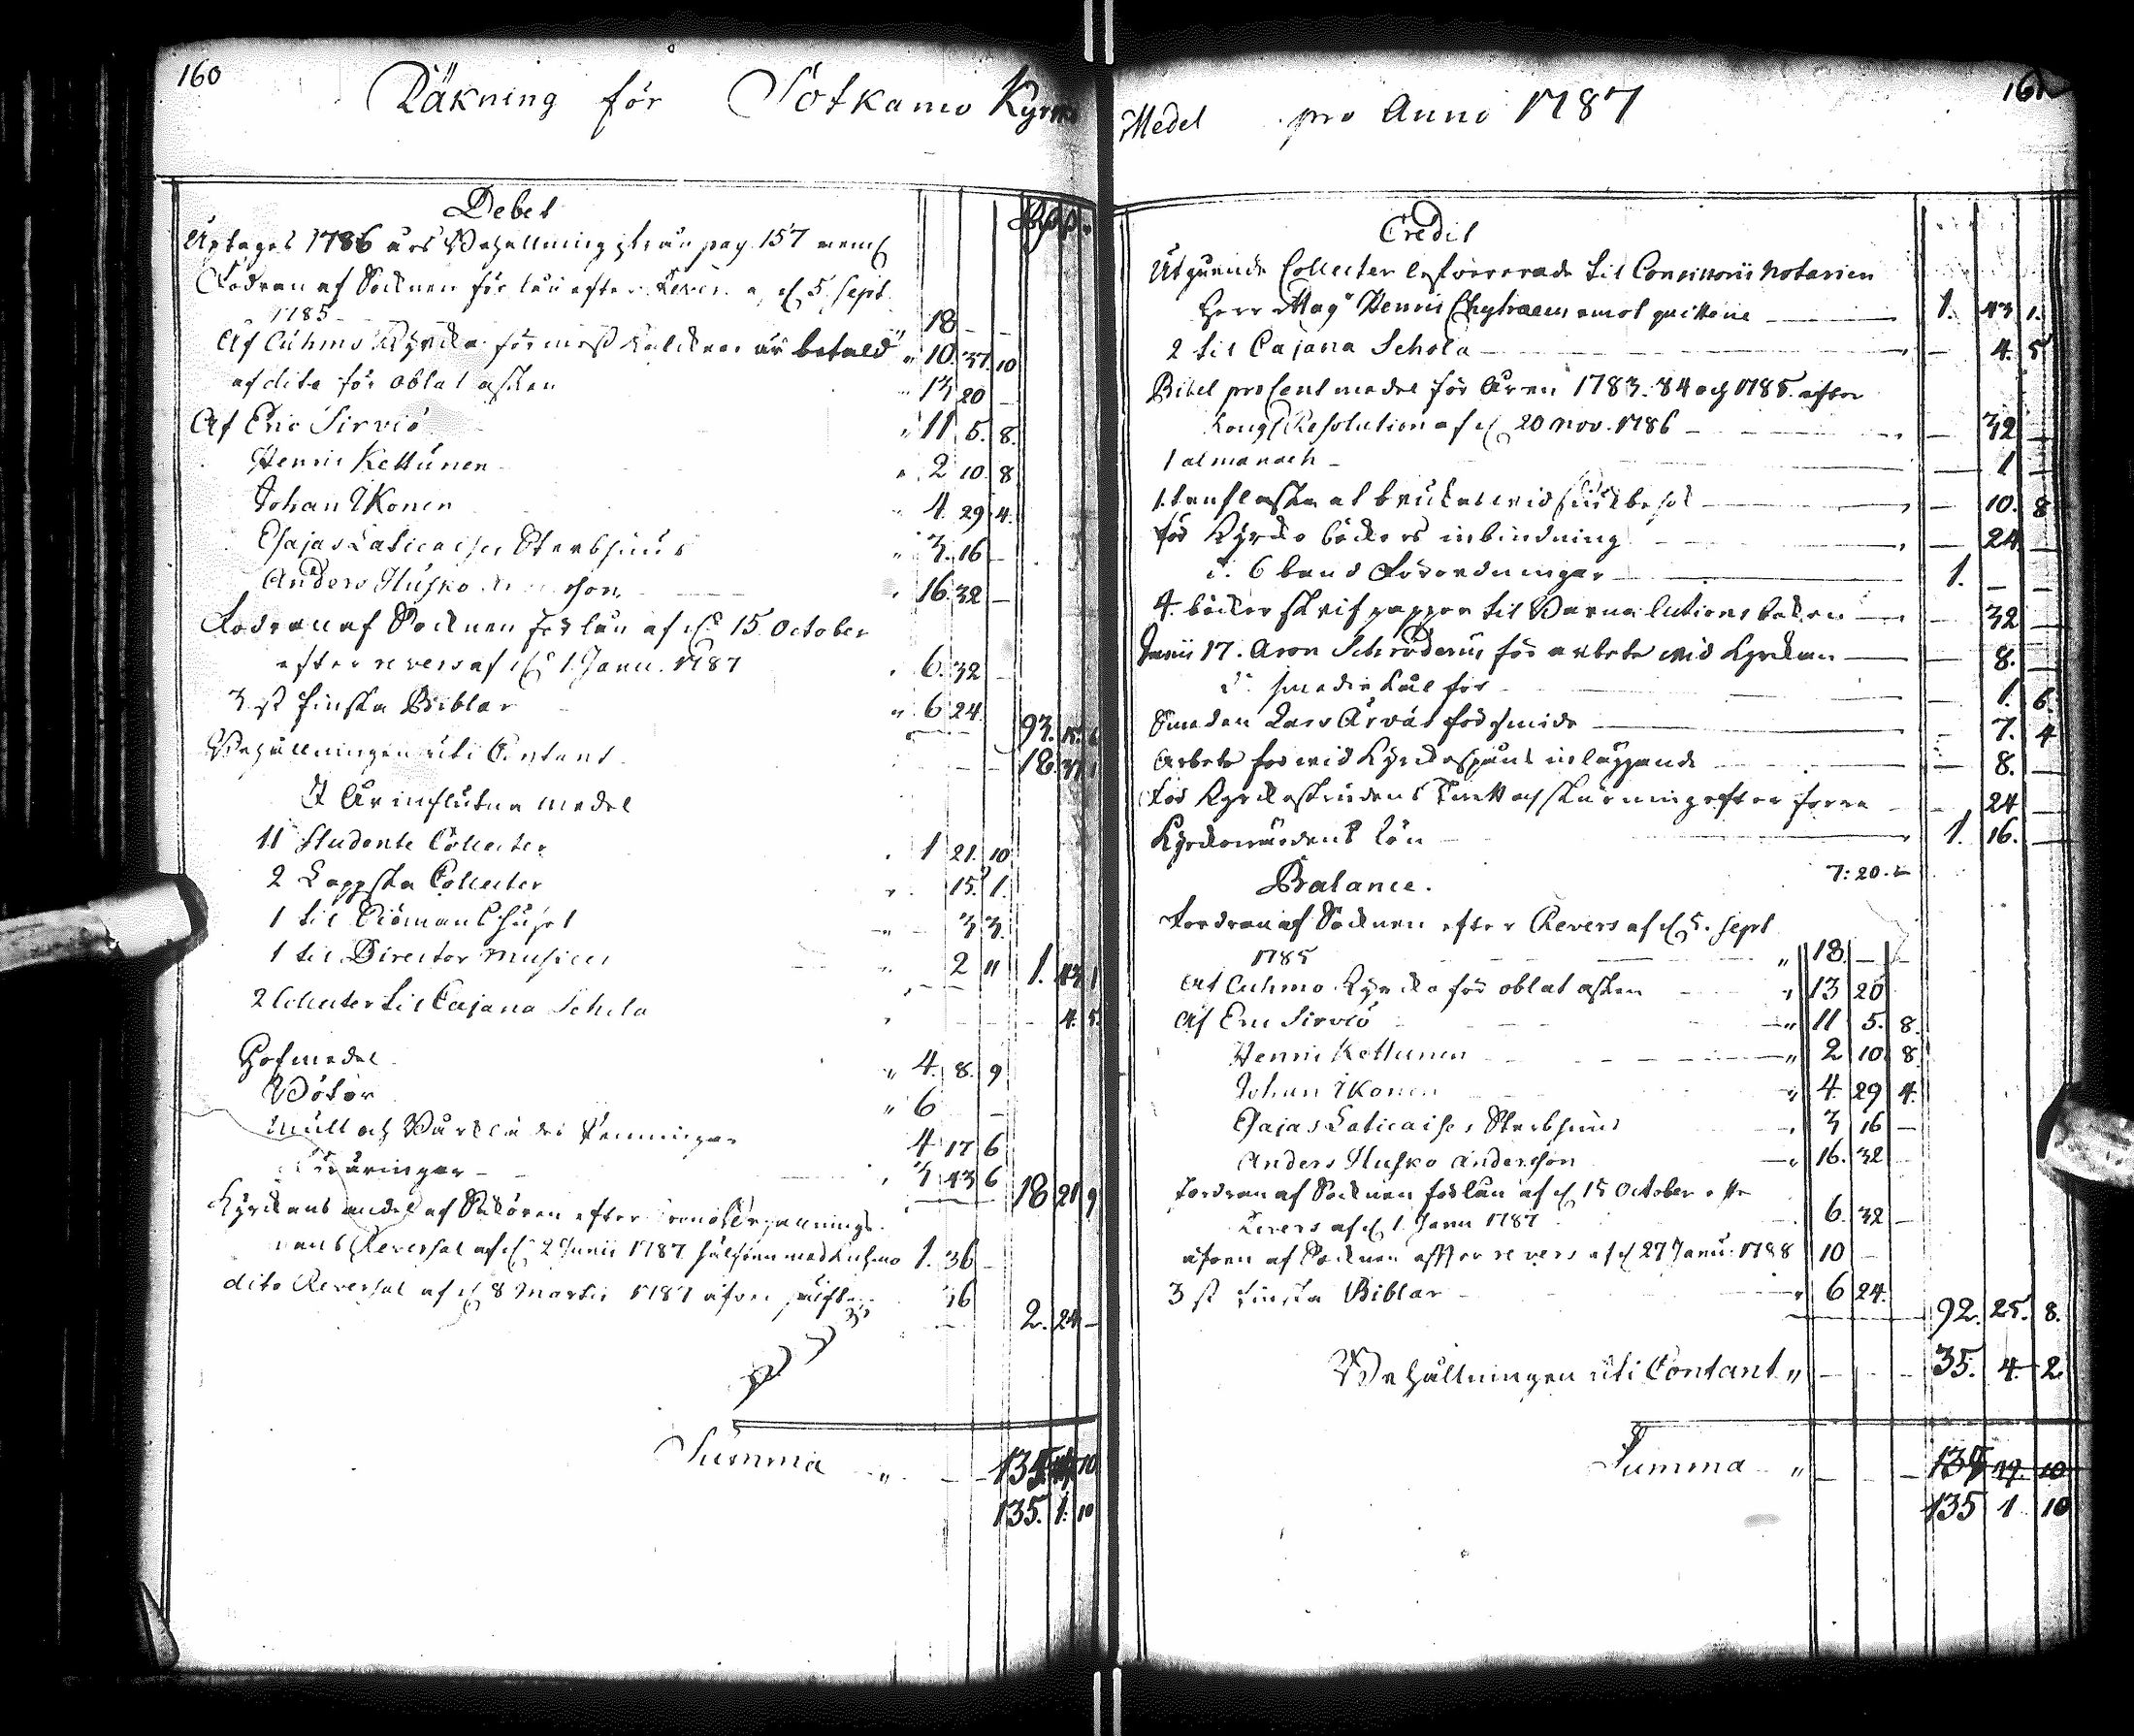 160
Räkning för Sotkamo Kyrko
Debet
Uptages 1786 års Behållning ifrån pag. 157 neml
Fodran af Socknen för lån efter Revers af d. 5 Sept.
1785 " 18 - -
Af Cuhmo Kyrcka för mess är betald " 10. 37. 10
af dito för oblat asken " 13 20 -
Af Eric Sirviö " 11. 5. 8.
Henric Kettunen " 2 10. 8
Johan Ikonen " 4. 29. 4.
Esajas Laticaises Sterbhuus " 3. 16 -
Anders Husko 16. 32 -
Fodran af Socknen för lån af d. 15 October
efter revers af d. 1 Janu. 1787 6. 32 -
3 st finska Biblar " 6 24. 93. 15. 6
Behållningen uti Contant 18 37 1
I År influtne medel
11 Studente Collecter 1 21. 10
2 Lappska Collecter " 15. 1.
1 til huset " 3 3.
1 til Director Musices " 2 " 1. 43 1
2 Collecter til Cajana Schola 4. 5.
Håfmedel " 4. 8. 9
Böter " 6 -
Mull och Penningar 4 17 6
3 43 6 18 21 9
Kyrckans andel af efter
Reversal af d. 2 Junii 1787 hälften med Kuhmo 1. 36 -
dito Reversal af d. 8 Martii 1787 äfven hälften 36 2. 24 -
Summa " 135 10
135. 1. 10
161
Medel pro Anno 1787
Credit
Utgående Collecter lefvererade til Consistorii Notarien
Herr Mag Henric Chytraeus emot quittence 1. 43 1.
2 til Cajana Schola - 4. 5
Bibel procent medel för Åren 1783. 84 och 1785. efter
Kongl Resolution af d. 20 nov. 1786 - 32 -
1 almanach - 1 -
1 flaska at brukas vid - 10. 8
för Kyrcko böckers inbindning - 24 -
d. 6 band Förordningar 1. - -
4 böcker skrif papper til - 32 -
Junii 17. Aron Schroderus för arbete vid Kyrckan - 8. -
d. smedie kål för - 1. 6.
Smeden Lars Ärväs för smide - 7. 4
Arbete för vid Kyrckospån inläggande - 8. -
För Kyrcko - 24 -
Kyrckovärdens lön 1. 16. -
7: 20. -
Balance.
Fordran af Socknen efter Revers af d. 5. Sept
1785 " 18. - -
Af Cuhmo Kyrcka för oblat asken " 13 20
Af Eric Sirviö " 11 5. 8.
Henric Kettunen " 2 10. 8
Johan Ikonen " 4. 29 4.
Esajas Laticaises Sterbhuus 3 16 -
Anders Husko Andersson 16. 32
Fordran af Socknen för lån af d. 15 October efter
Revers af d. 1 Janu 1787 6. 32 -
äfven af Socknen efter revers af d. 27 Janu. 1788 10 -
3 st finska Biblar " 6 24. 92. 25. 8.
Behållningen uti Contant " 35. 4. 2
Summa " 10
135 1 10